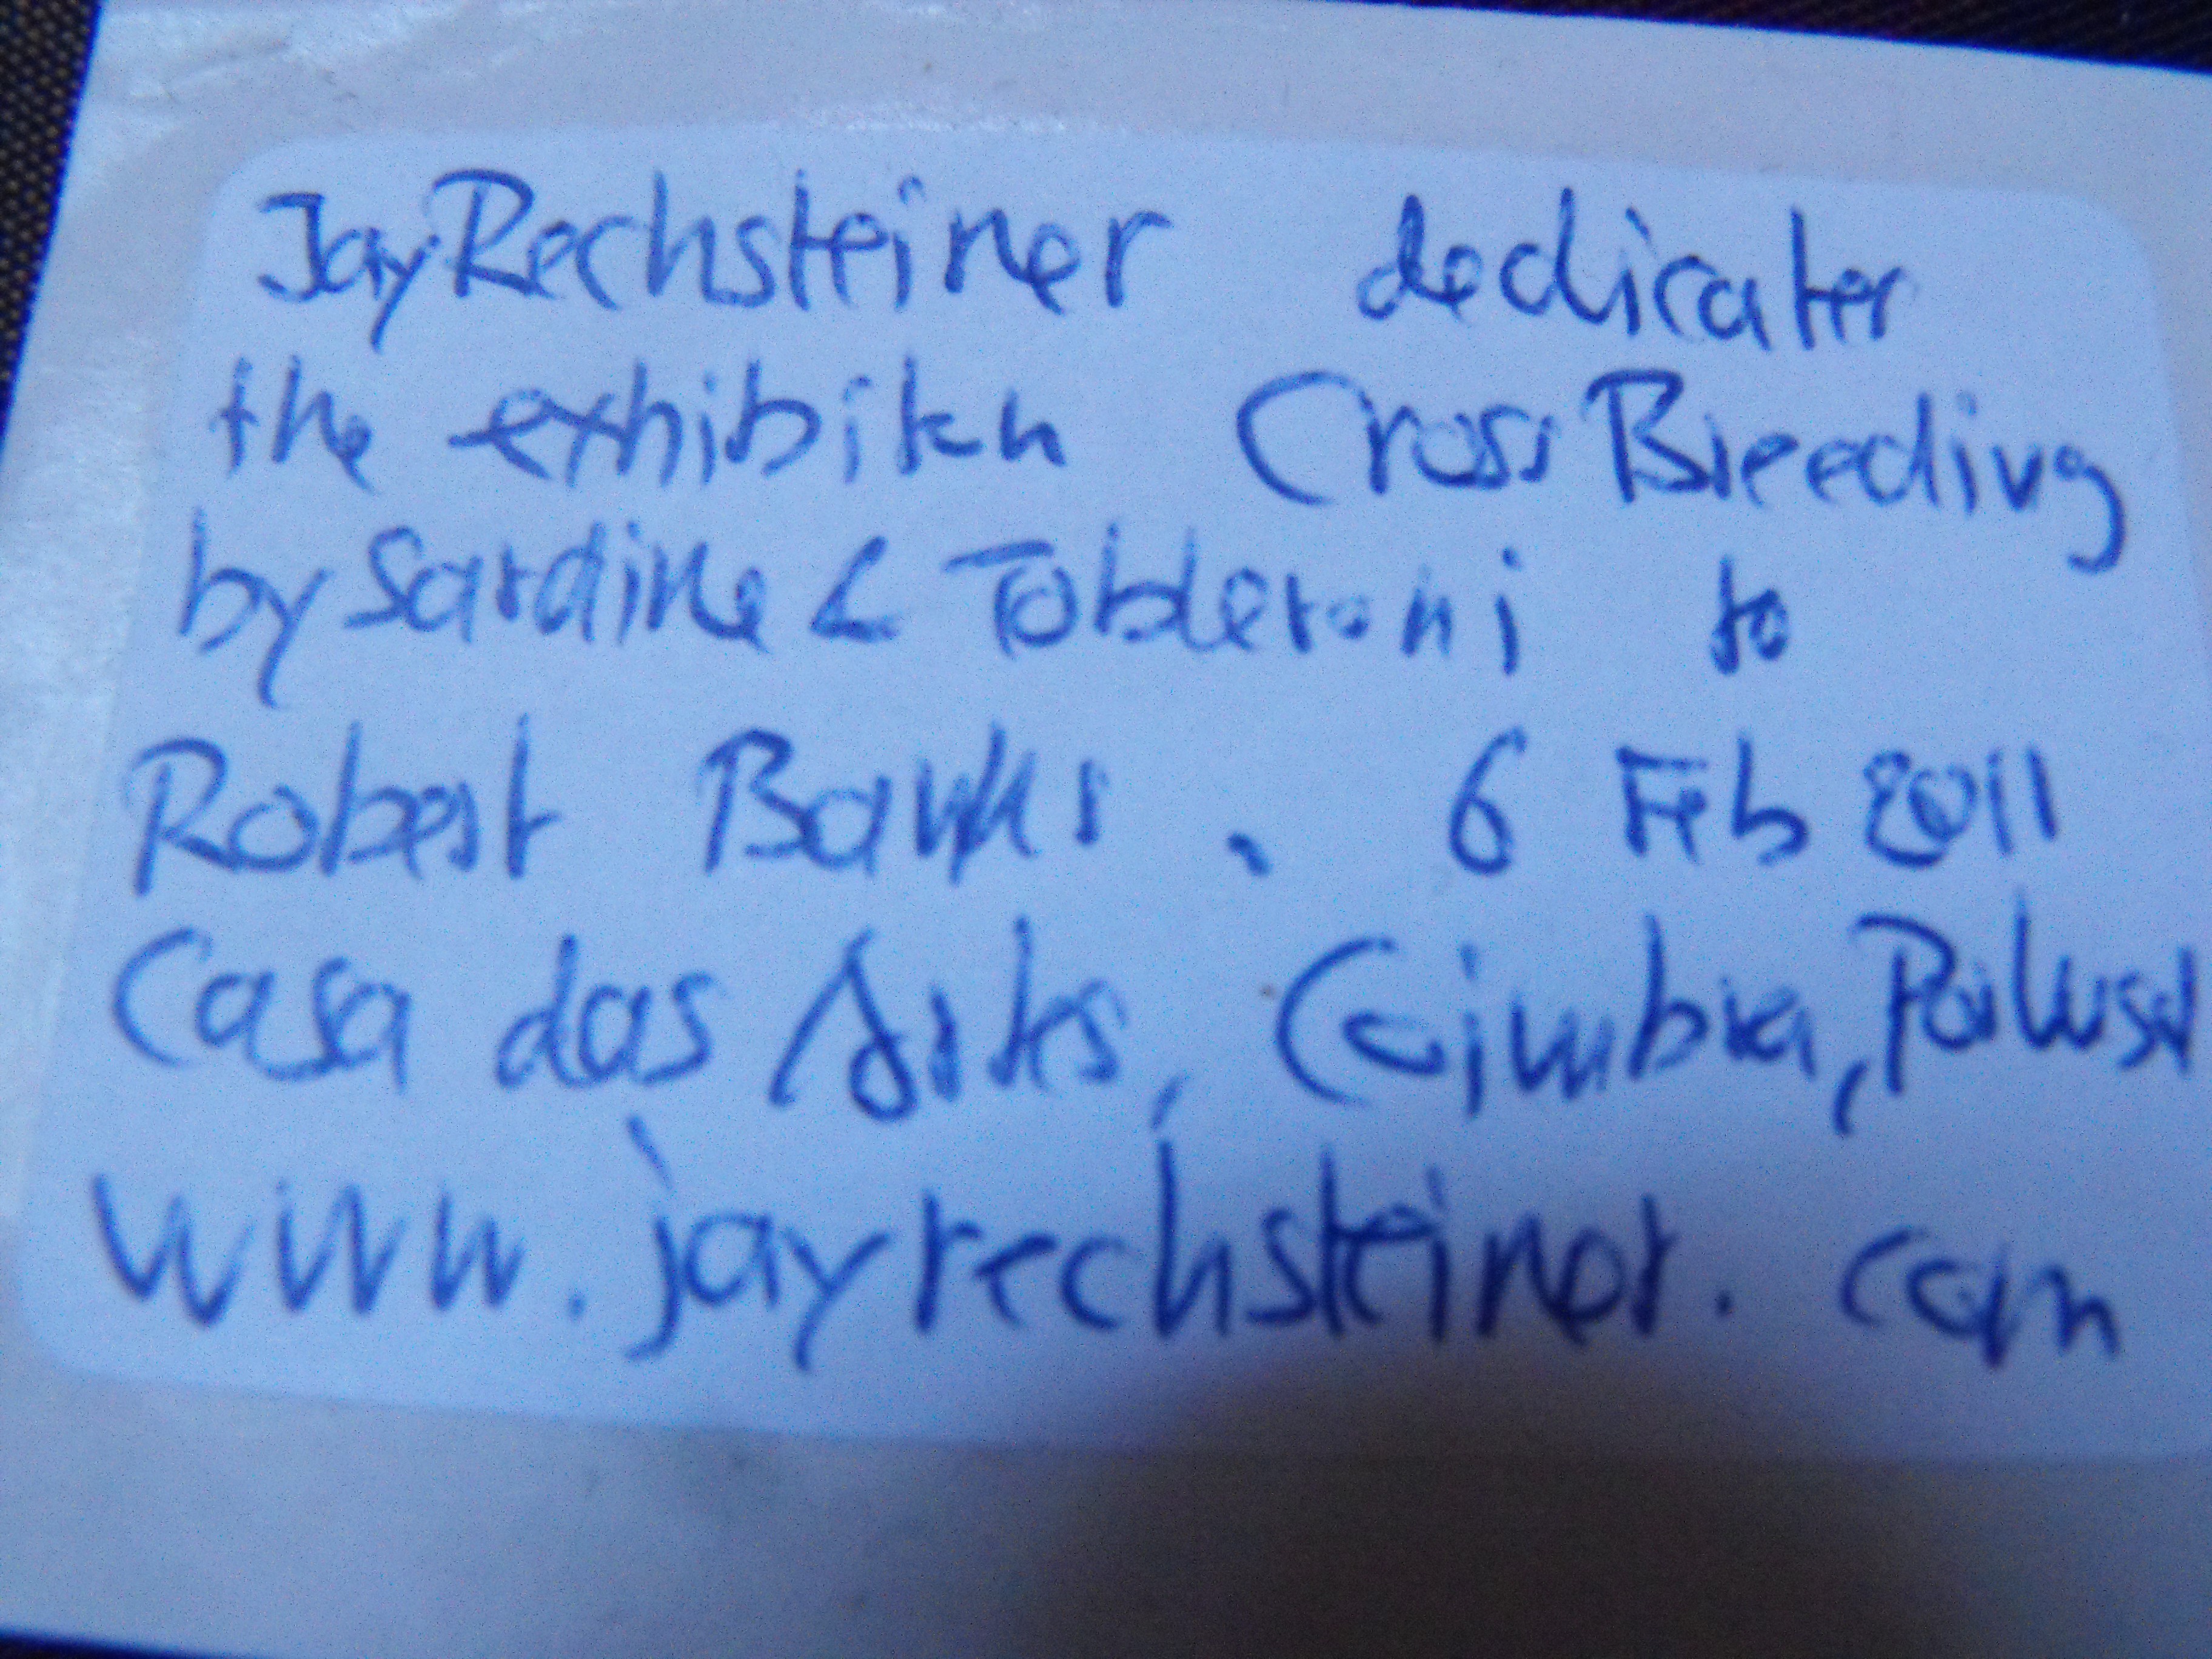 Jay Rechsteiner dedicates
the exhibition Cross Bleeding
by Sardine & Tobleroni to
Robert Banks. 6 Feb 2011
Casa das Artes, Coimbra, Portugal
www.jayrechsteiner.com